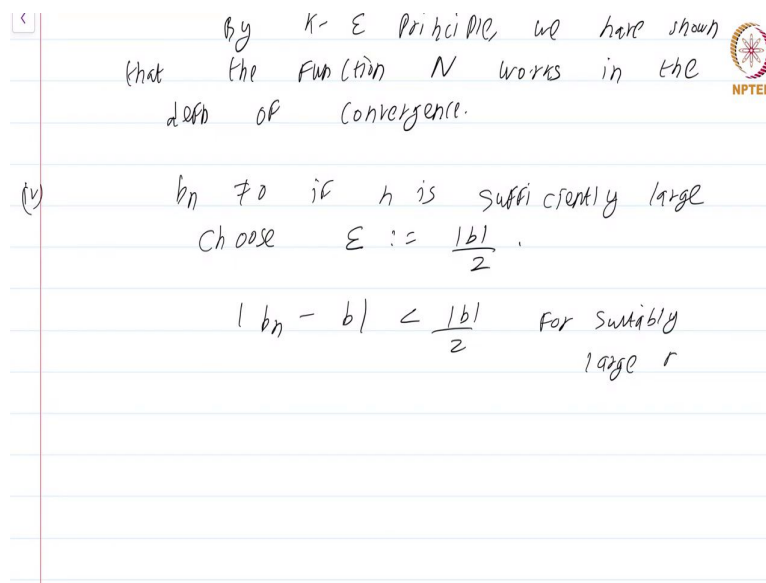 By K-ε Principle, we have shown
that the function N works in the
NPTEL
defn of convergence.
(iv) bn ≠0 if n is sufficiently large
Choose ε := |b|/2 .
|bn - b| < |b|/2 for suitably
large